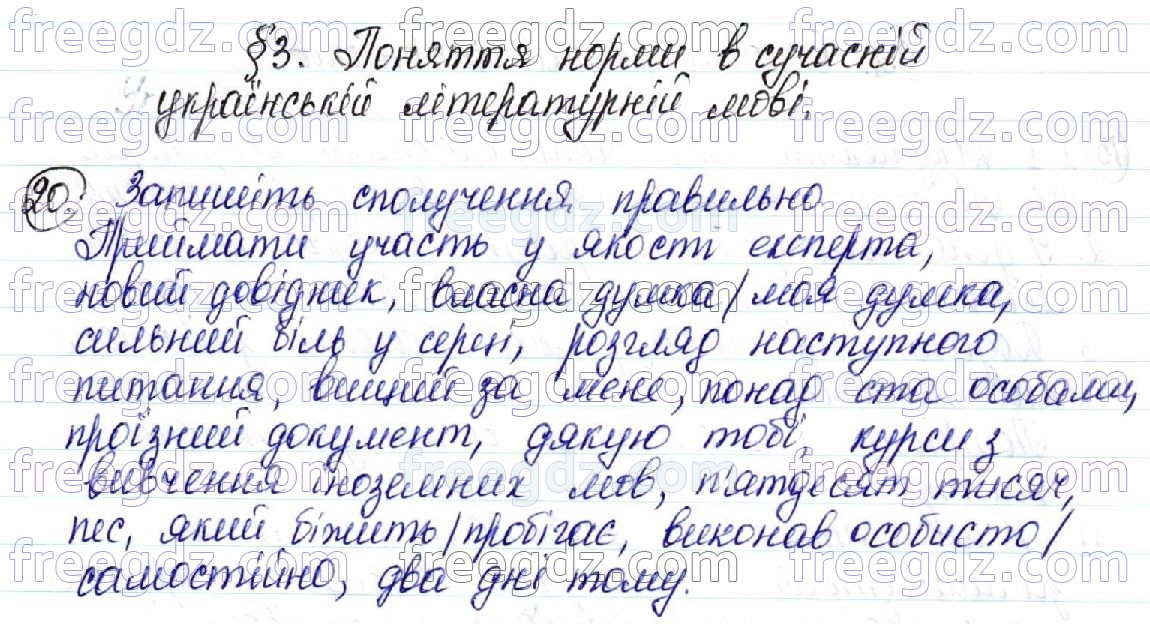 §3. Поняття норми в сучасній
українській літературній мові.
20. Запишіть сполучення правильно
Приймати участь у якості експерта,
новий довідник, власна думка/моя думка,
сильний біль у серці, розгляд наступного
питання, вищий за мене, понад ста особами,
проїзний документ, дякую тобі, курси з
вивчення іноземних мов, п'ятдесят тисяч,
пес, який біжить/пробігає, виконав особисто/
самостійно, два дні тому.